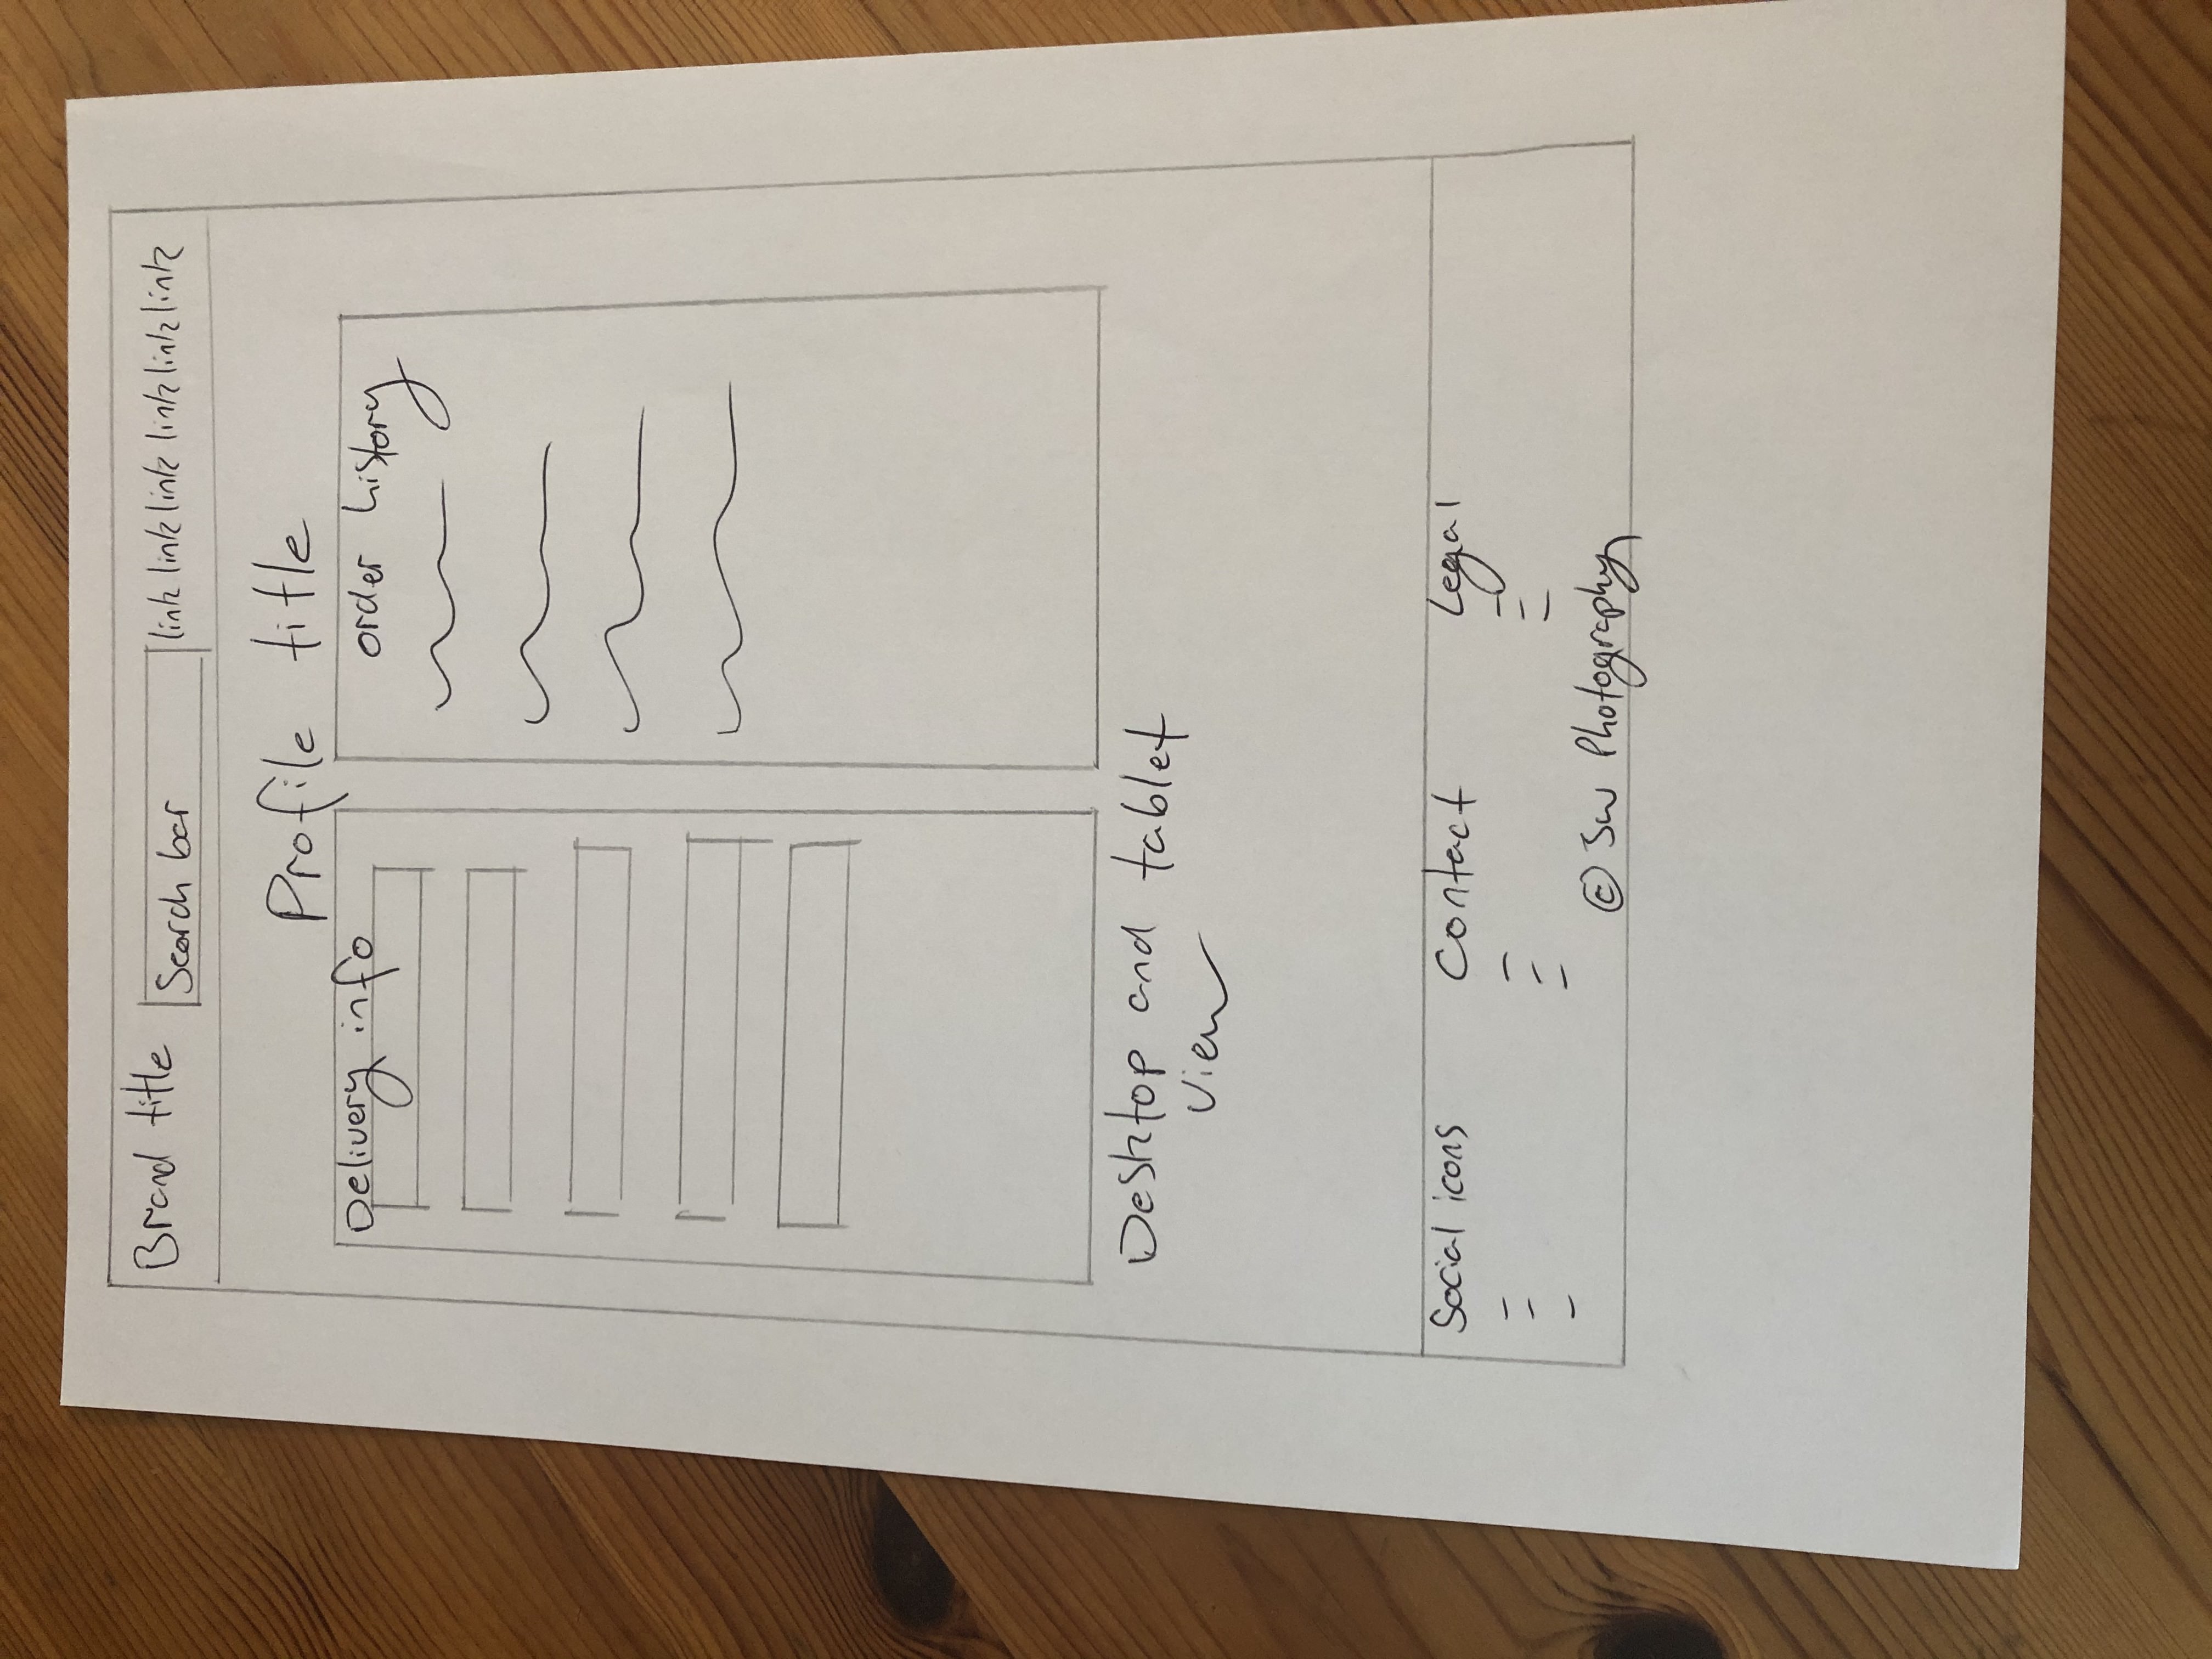 Brand title
Search bar
link link link link link link
Profile title
Delivery info
order history
Desktop and tablet
view
Social icons
Contact
Legal
© SW Photography